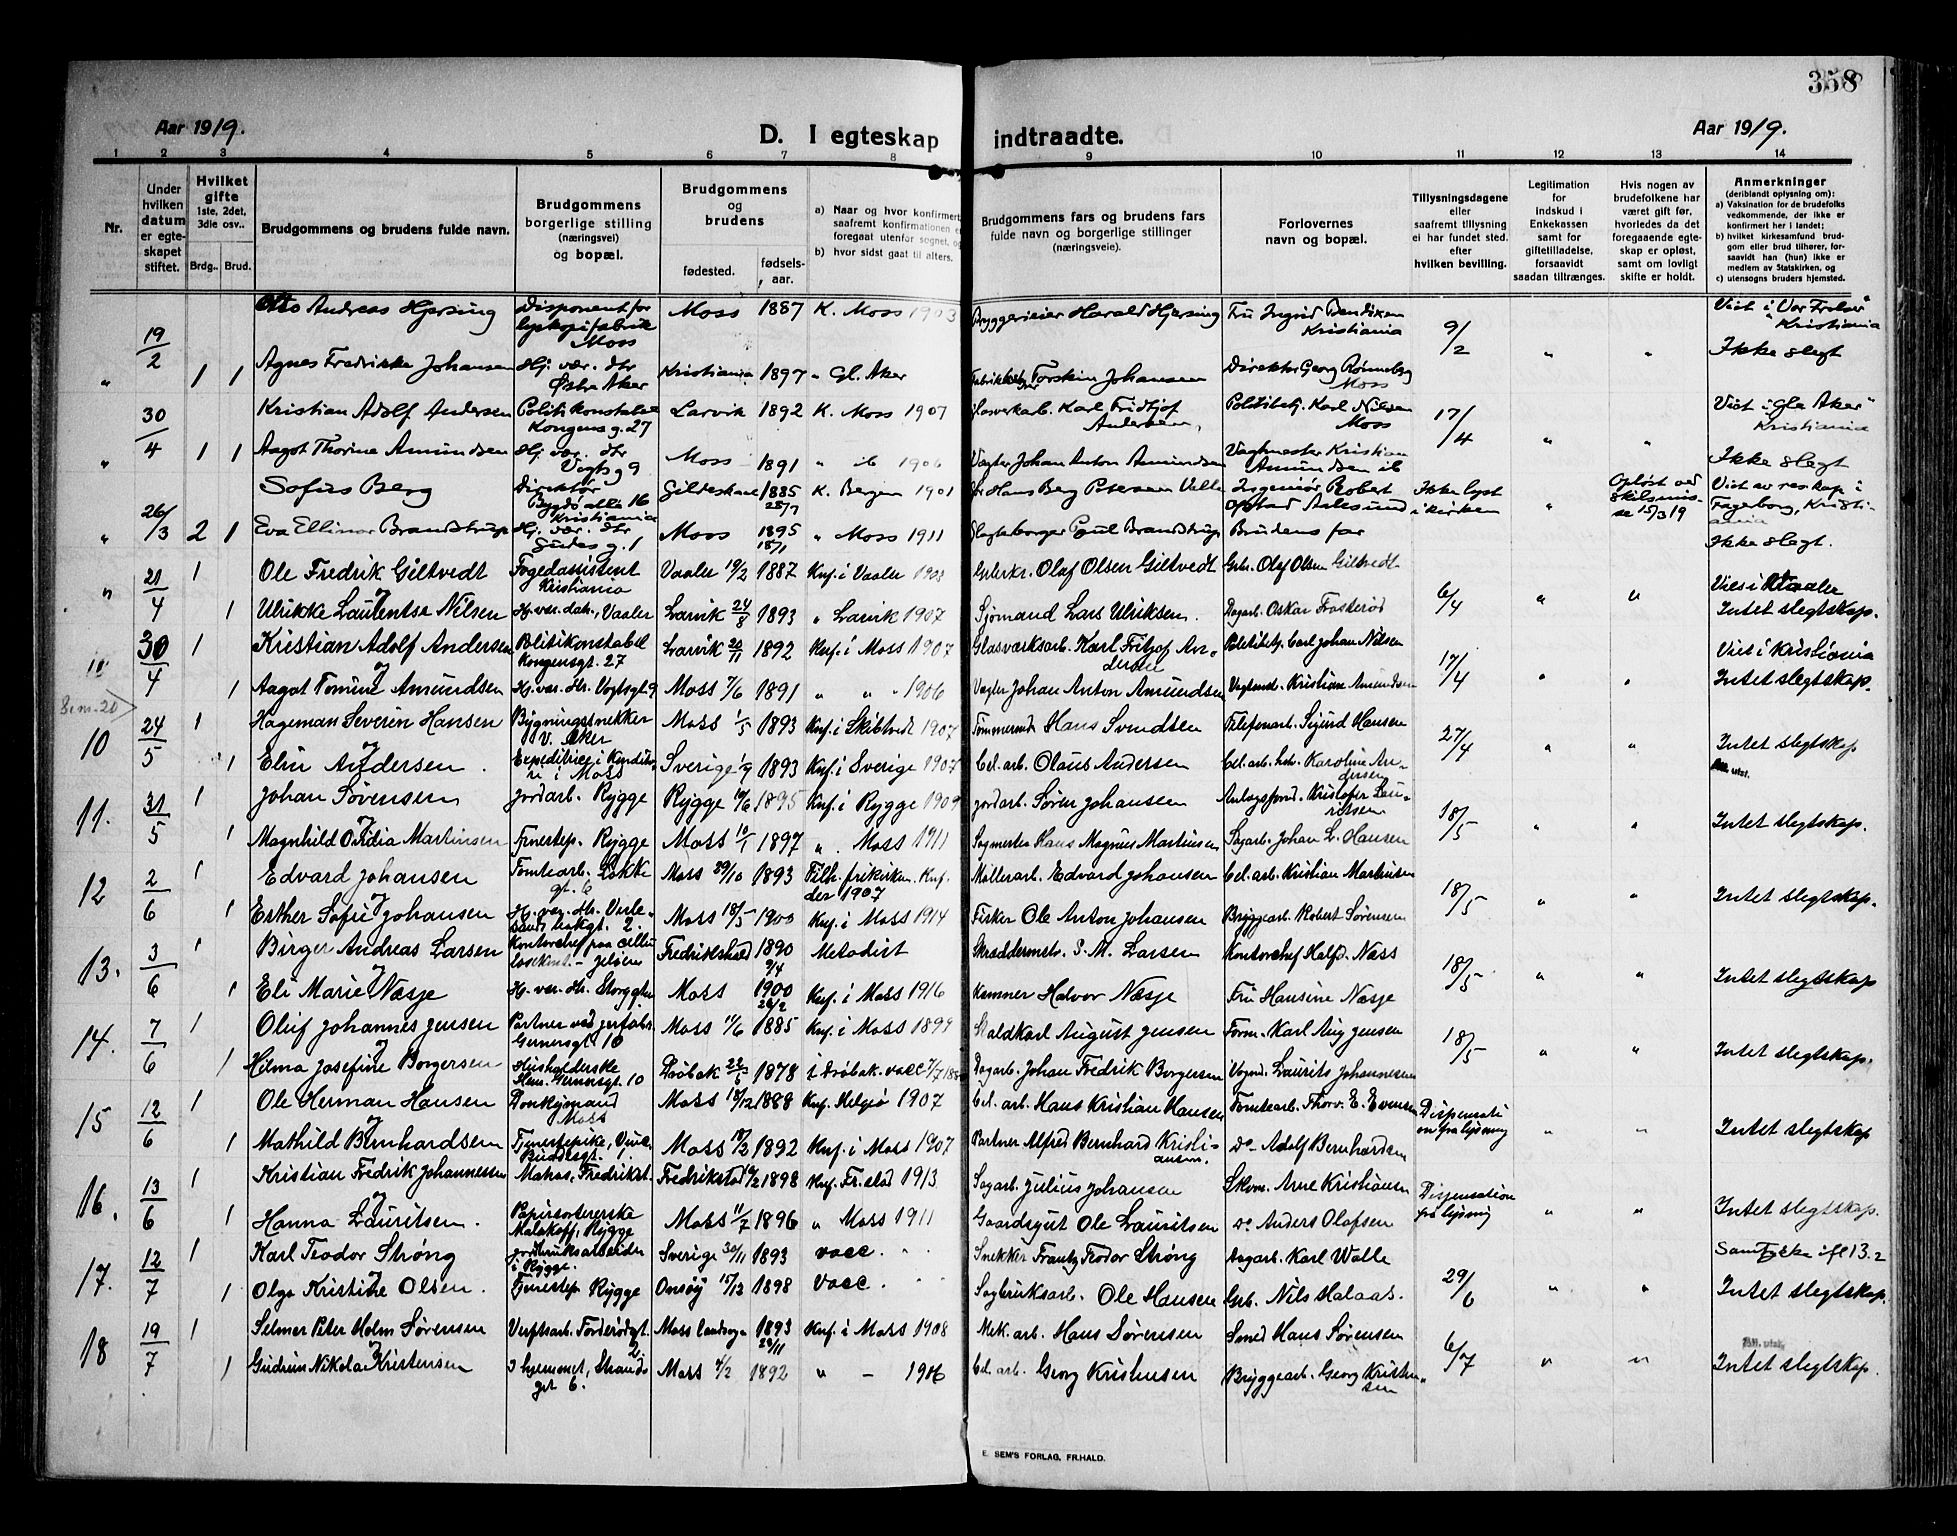 358
Aar 1919.
D. I egteskap indtraadte.
Aar 1919.
1 2 3 4 5 6 7 8 9 10 11 12 13 14
Nr.
Under hvilken datum er egteskapet stiftet.
Hvilket gifte 1ste, 2det, 3die osv..
Brdg.. Brud.
Brudgommens og brudens fulde navn.
Brudgommens borgerlige stilling (næringsvei) og bopæl.
Brudgommens og brudens
fødested. fødsels-aar.
a) Naar og hvor konfirmert, saafremt konfirmationen er foregaat utenfor sognet, og
b) hvor sidst gaat til alters.
Brudgommens fars og brudens fars fulde navn og borgerlige stillinger (næringsveie).
Forlovernes navn og bopæl.
Tillysningsdagene eller saafremt tillysning ei har fundet sted. efter hvilken bevilling.
Legitimation for indskud i Enkekassen samt for giftetilladelse, forsaavidt saadan tiltrænges.
Hvis nogen av brudefolkene har været gift før, hvorledes da det foregaaende egteskap er opløst, samt om lovligt skifte er holdt.
Anmerkninger (deriblandt oplysning om):
a) Vaksination for de brudefolks vedkommende, der ikke er konfirmert her i landet;
b) hvilket kirkesamfund brudgom eller brud tilhører, forsaavidt han (hun) ikke er medlem av Statskirken, og
c) utensogns bruders hjemsted.
" 19/2 Otto Andreas Hjersing Disponent for Moss Moss 1887 K. Moss 1903 Bryggerieier Harald Hjersing Fru Ingrid Bendixen Kristiania 9/2 " " Viet i Vor Frelser" Kristiania
1 1 Agnes Fredrikke Johansen Hj. vær. dtr Østre Aker Kristiania 1897 " Gl. Aker Torstein Johansen Direktør Georg Rønneberg Moss Ikke slegt
" 30/4 Kristian Adolf Andersen Politikonstabel Kongens g. 27 Larvik 1892 K. Moss 1907 Glasverkarb. Karl Fridtjof Andersen, Politibetj. Karl Nilsen Moss 17/4 " " Viet i Gle Aker" Kristiania
1 1 Aagot Thorine Amundsen Hj. vær. dtr Vogts g 9 Moss 1891 " ib 1906 Vagter Johan Anton Amundsen Vagtmester Kristian Amundsen ib Ikke slegt
" 26/3 2 Sofus Berg Direktør Bygdø alle 16 Kristiania Gildeskaal 1885 25/7 K. Bergen 1901 Hans Berg Petersen Valle Ingeniør Robert Opstad Aalesund Ikke lyst i kirken " Opløst ved skilsmisse 15/3 19 Viet av res kap i Fagerborg, Kristiania
1 Eva Ellinor Brandstrup Hj. vær. dtr Gudes g. 1 Moss 1895 18/1 " Moss 1911 Poul Brandstrup Brudens far Ikke slegt.
" 21/4 1 Ole Fredrik Giltvedt Fogedassistent Kristiania Vaaler 19/2 1887 Knf. i Vaaler 1903 Olaf Olsen Giltvedt Grb. Olaf Olsen Giltvedt 6/4 " " Viet i Vaaler
1 Ulrikke Laurentse Nilsen Hj. vær. datr., Vaaler Larvik 24/8 1893 " Larvik 1907 Sjømand Lars Ulriksen. Dagarb. Oskar Frosterød Intet slegtskap.
30/4 1 Kristian Adolf Andersen Politikonstabel Kongensgt. 27 Larvik 20/11 1892 Knf. i Moss 1907 Glasværksarb. Karl Fritjof Andersen Politibetj. Carl Johan Nilsen 17/4 " " Viet i Kristiania
1 Aagot Tomine Amundsen Hj. vær. dtr. Vogtsgt 9 Moss 7/6 1891 " " " 1906 Vagter Johan Anton Amundsen Vagtmd. Kristian Amundsen Intet slegtskap.
10 24/5 1 Hageman Severin Hansen Bygningssnekker V. Aker Moss 1/5 1893 Knf. i Skibtvedt 1907 Tømmermd Hans Svendsen Telefonarb. Sigurd Hansen 27/4 " " Intet slegtskap
1 Elin Andersen. Expeditrice i Konditori i Moss Sverige 1/9 1893 Knf. i Sverige 1907 Cel. arb. Olaus Andersen Cel. arb. hstr. Karoline Andersen Att. utst.
11. 31/5 1 Johan Sørensen Jordarb. Rygge Rygge 10/6 1895 Knf. i Rygge 1909 Jordarb. Søren Johansen Anlægsford. Kristofer Lauritsen 18/5 " " Intet slegtskap.
1 Magnhild Ovidia Martinsen Tjenestep. Rygge Moss 10/1 1897 " Moss 1911 Sagmester Hans Magnus Martinsen Sagarb. Johan L. Hansen
12 2/6 1 Edvard Johansen Tomtearb. Løkke gt. 6 Moss 30/10 1893 Tilh. frikirken. Knf. der 1907 Møllerarb. Edvard Johansen Cel. arb. Kristian Martinsen 18/5 " " Intet slegtskap.
1 Esther Sofie Johansen Hj. vær. dtr. Verlesandsbakgt. 2. Moss 18/5 1900 Knf. i Moss 1914 Fisker Ole Anton Johansen Bryggearb. Robert Sørensen
13. 3/6 1 Birger Andreas Larsen Kontorchef paa Jeløen Fredrikshald 1890 9/4 Metodist Skræddermstr. S. M. Larsen Kontorchef Halfd. Næss 18/5 " " Intet slegtskap
1 Eli Marie Næsje Hj. vær. dtr. Storggt. Moss 1900 26/2 Knf. i Moss 1916 Kemner Halvor Næsje Fru Hansine Næsje
14. 7/6 1 Oluf Johannes Jensen Portner ved Gernersgt. 10 Moss 11/6 1885 Knf. i Moss 1899 Staldkarl August Jensen Form. Karl Aug Jensen 18/5 " " Intet slegtskap.
1 Hilma Josefine Borgersen Husholderske Hen. Gernersgt. 10 Drøbak 22/6 1878 i Drøbak. vacc 7/7 188 Dagarb. Johan Fredrik Borgersen Vognd. Laurits Johannesen
15 12/6 1 Ole Herman Hansen Donkeymand Moss Moss 18/12 1888 Knf. Helgø 1907 Cel. arb. Hans Kristian Hansen Tomtearb. Thorv. E. Evensen Dispensation fra lysning " " Intet slegtskap
1 Mathild Bernhardsen Tjenestepike, Moss 18/2 1892 Knf. i Moss 1907 Portner Alfred Bernhard Kristiansen. Do Adolf Bernhardsen
16. 13/6 1 Kristian Fredrik Johannessen Matros, Fredrikst. Fredrikstad 1898 Knf. Fr.stad 1913 Sagarb. Julius Johansen Skom. Arne Kristiansen Dispensation fra lysning " " Intet slegtskap.
1 Hanna Lauritsen. Papirsortererske Malakoff, Rygge Moss 11/7 1896 " Moss 1911 Gaardsgut Ole Lauritsen Do Anders Olafsen
17. 12/7 1 Karl Teodor Strøng Jordbruksarbeider i Rygge. Sverige 30/11 1893 vacc. Snekker Frantz Teodor Strøng Dagarb. Karl Walle 29/6 " " Samtykke ifl 13.2
1 Olga Kristine Olsen. Tjenestep. Rygge Onsøy 15/12 1898 vacc. Sagbruksarb. Ole Hansen Grb. Nils Halaas. Intet slegtskap.
18 19/7 1 Selmer Peter Holm Sørensen Verftsarb. Tørderødgt. 2. Moss landsogn 1893 29/11 Knf. i Moss 1908 Mek. arb. Hans Sørensen Smed Hans Sørensen 6/7 " " Att. utst.
1 Gudrun Nikolai Kristensen I hjemmet, Strandsgt 6. Moss 4/2 1892 " - 1906 Cel. arb. Georg Kristensen Bryggearb. Georg Kristensen Intet slegtskap.
E. SEM'S FORLAG, FR.HALD.